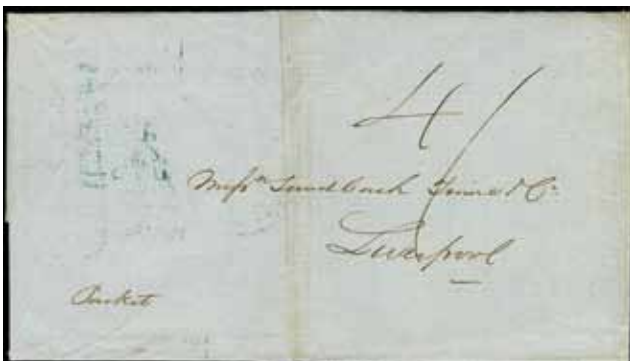 4/
Messrs Sandbach Tinne & Co
Liverpool
Packet